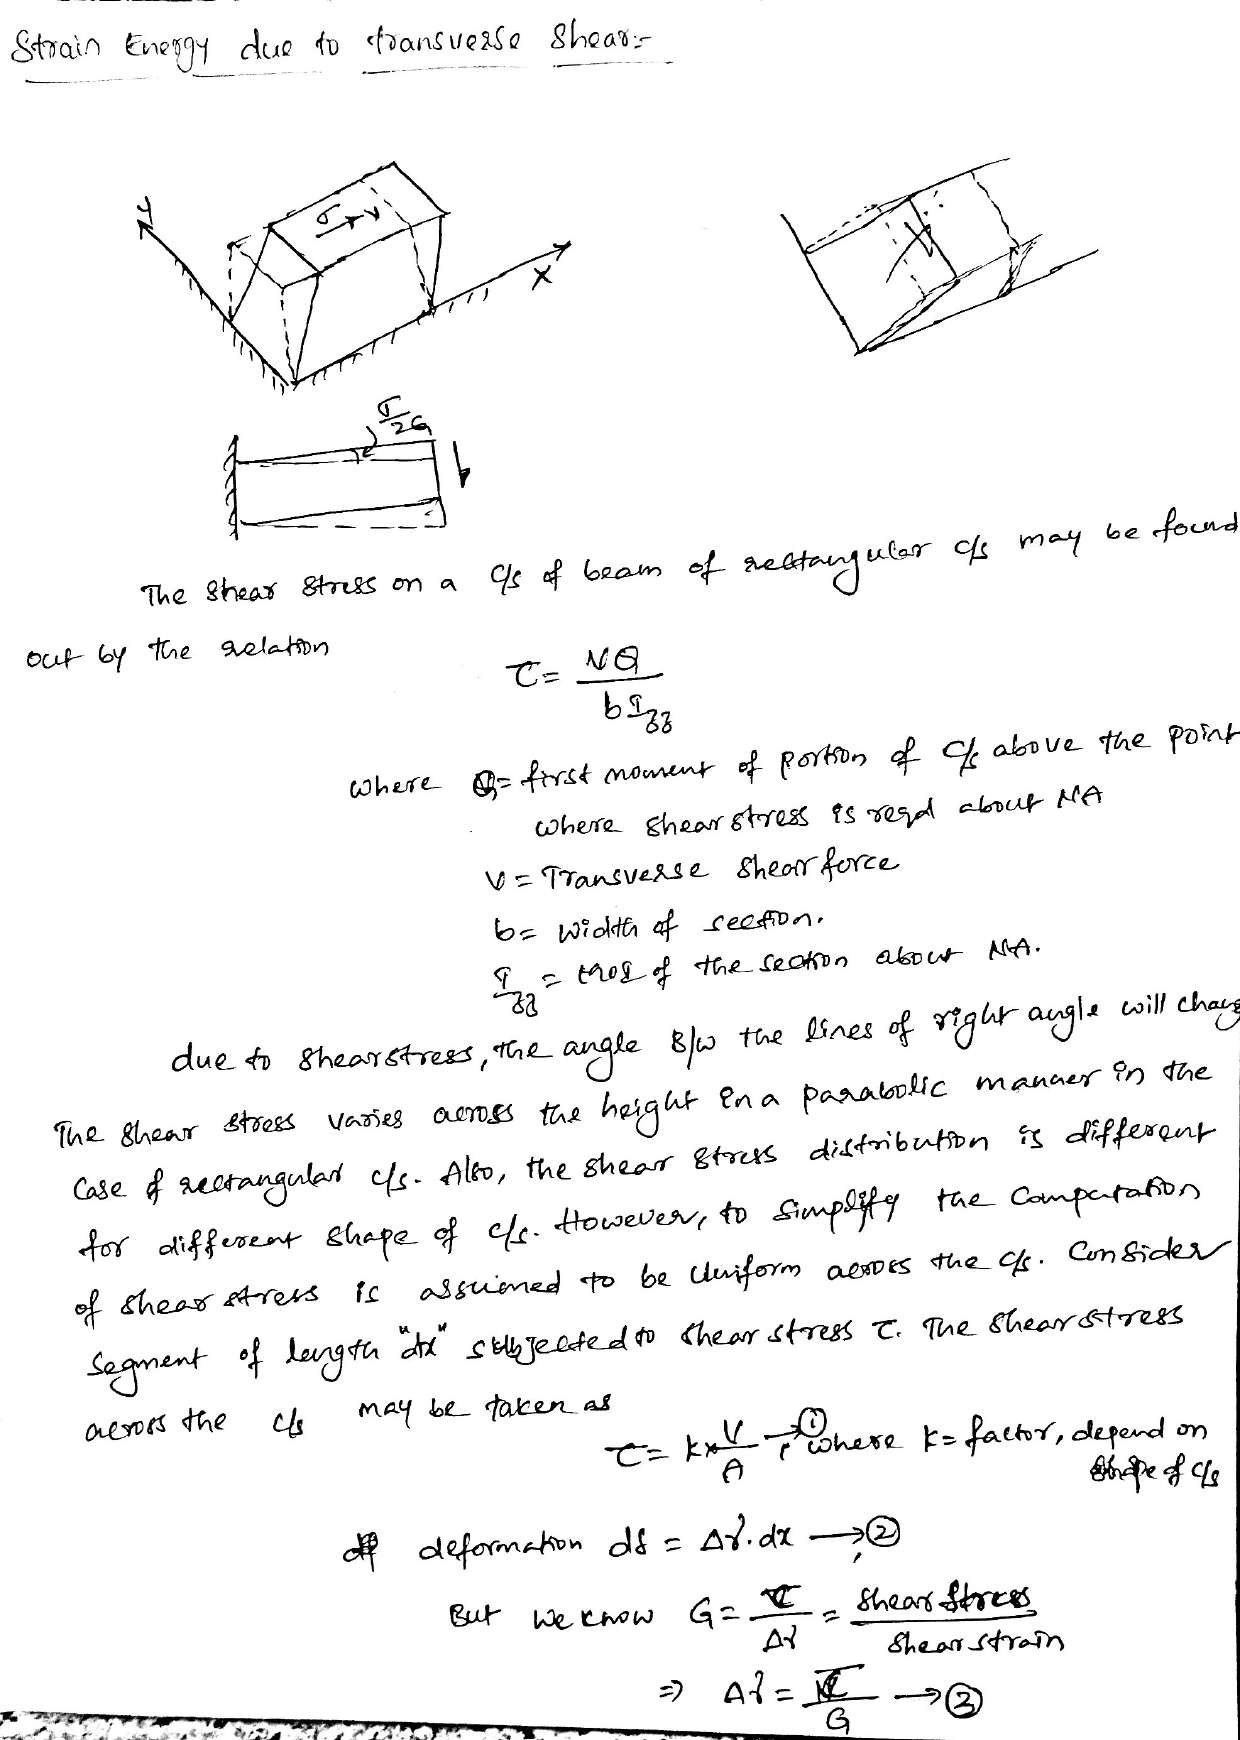 Strain Energy due to transverse Shear:-
Y
σ → V
X
σ/2G
The Shear Stress on a c/s of beam of rectangular c/s may be found
out by the relation
τ = VQ / b I_zz
where Q = first moment of portion of c/s above the point
where shear stress is reqd about NA
V = Transverse shear force
b = width of section.
I_zz = of the section about NA.
due to shear stress, the angle B/w the lines of right angle will
The shear stress varies across the height in a parabolic manner in the
case of rectangular c/s. Also, the shear stress distribution is different
for different shape of c/s. However, to simplify the Computation
of shear stress is assumed to be Uniform across the c/s. Consider
segment of length "dx" subjected to shear stress τ. The shear stress
across the c/s may be taken as
τ = k × V/A → ①, where k = factor, depend on
shape of c/s
deformation dδ = Δγ.dx → ②
But we know G = τ/Δγ = Shear stress / Shear strain
⇒ Δγ = τ/G → ③